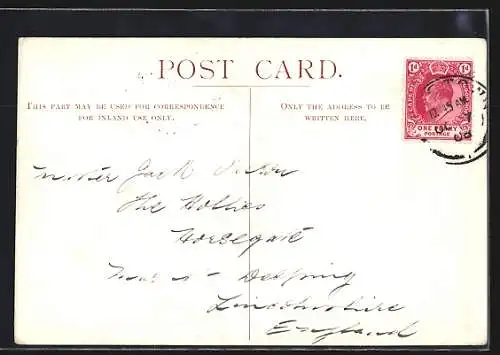 POST CARD.
THIS PART MAY BE USED FOR CORRESPONDENCE
FOR INLAND USE ONLY.
ONLY THE ADDRESS TO BE
WRITTEN HERE.
1d 1d
ONE PENNY
POSTAGE
Master Jack
The Hollies
Horsegate
Market Deeping
Lincolnshire
England